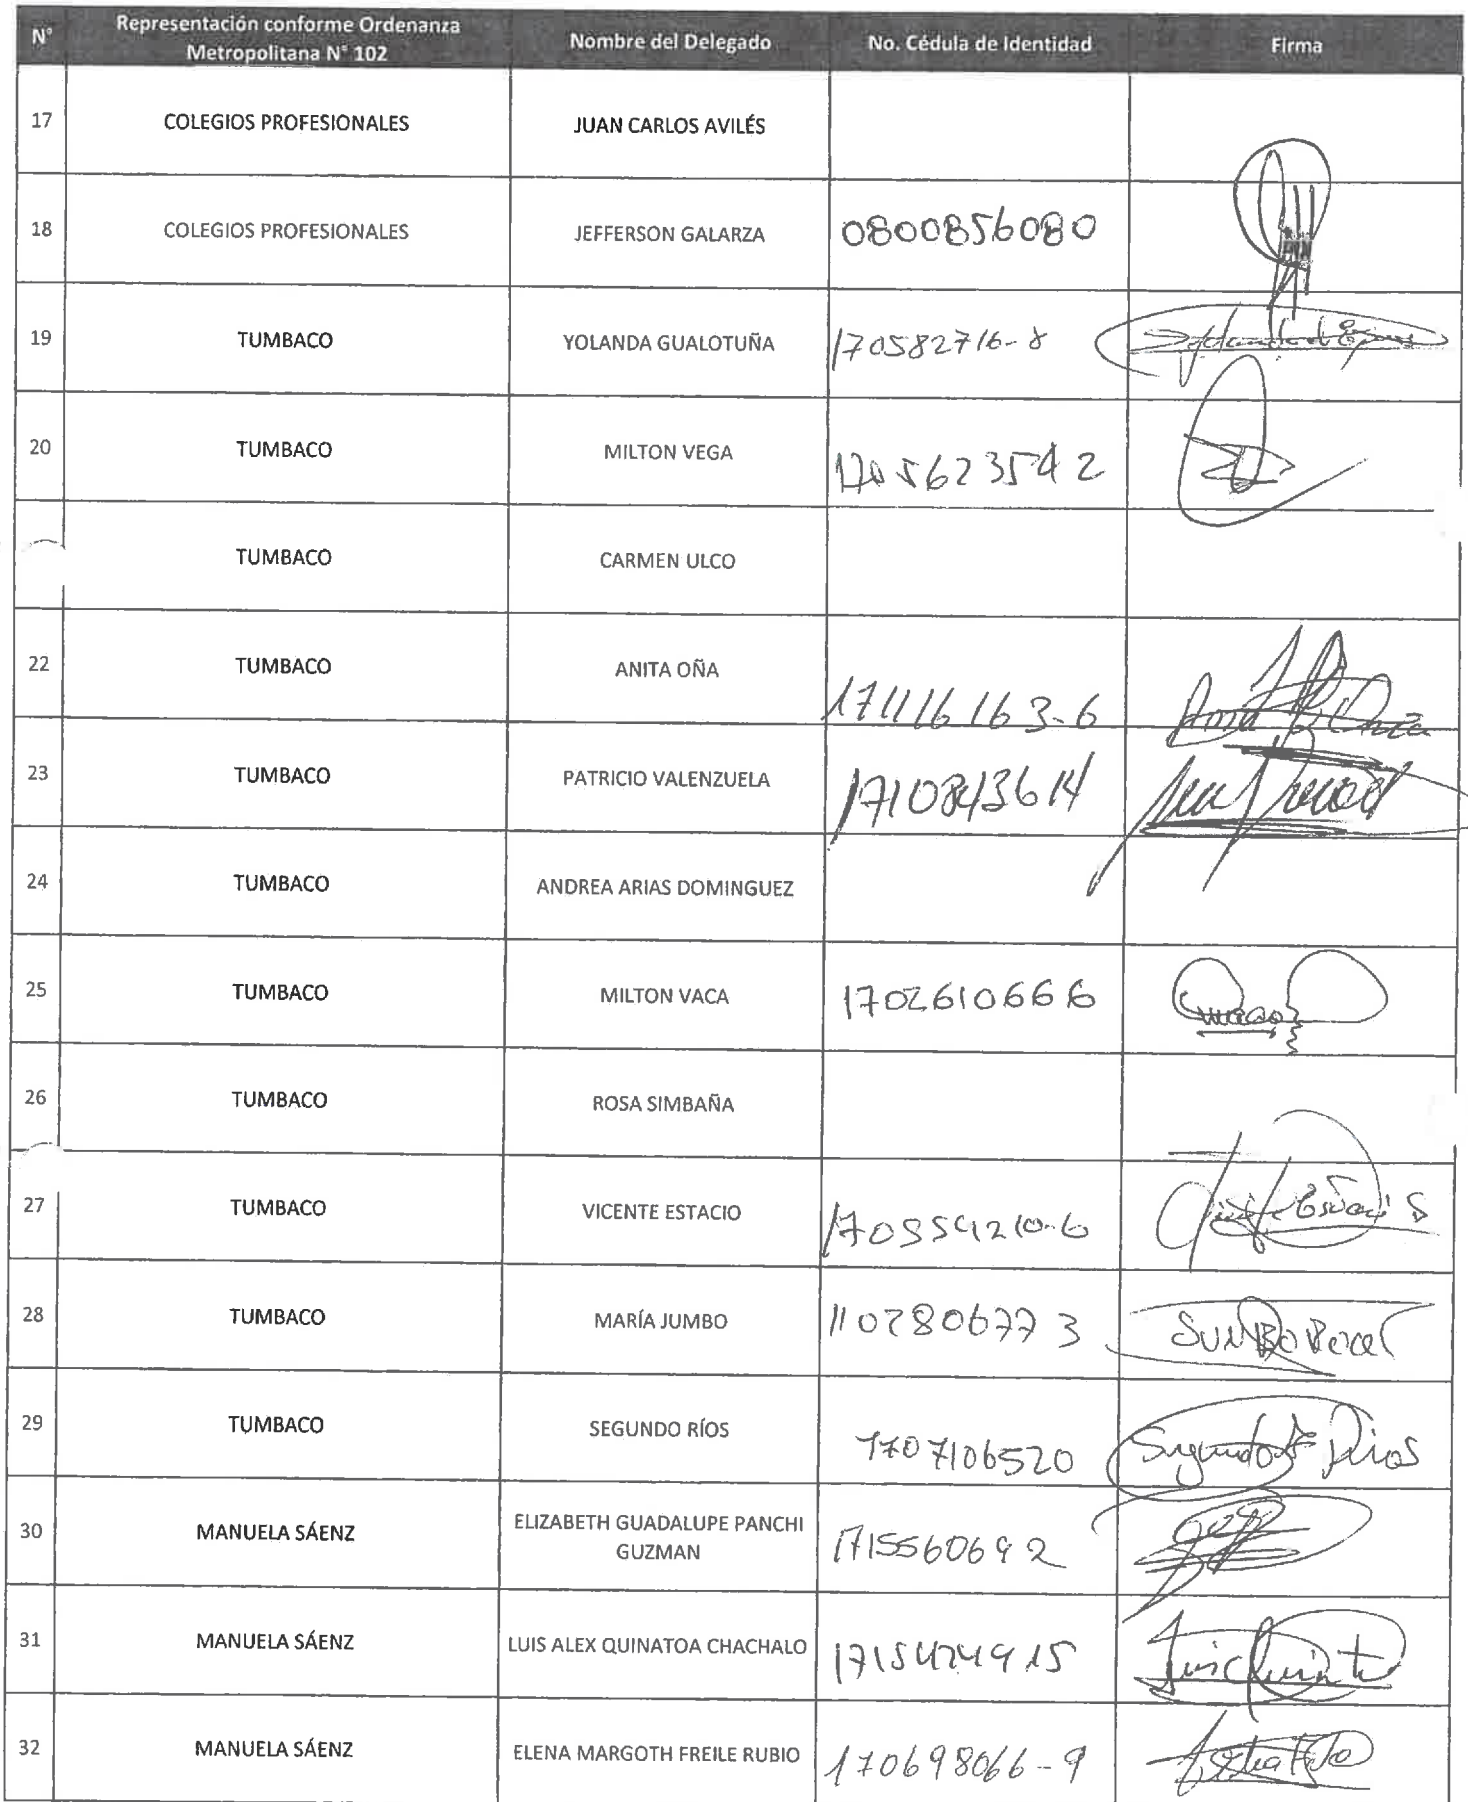 N° Representación conforme Ordenanza Metropolitana N° 102 Nombre del Delegado No. Cédula de Identidad Firma
17 COLEGIOS PROFESIONALES JUAN CARLOS AVILÉS
18 COLEGIOS PROFESIONALES JEFFERSON GALARZA 0800856080
19 TUMBACO YOLANDA GUALOTUÑA 170582716-8
20 TUMBACO MILTON VEGA 1705623542
TUMBACO CARMEN ULCO
22 TUMBACO ANITA OÑA 171116163-6
23 TUMBACO PATRICIO VALENZUELA 1710843614
24 TUMBACO ANDREA ARIAS DOMINGUEZ
25 TUMBACO MILTON VACA 1702610666
26 TUMBACO ROSA SIMBAÑA
27 TUMBACO VICENTE ESTACIO
28 TUMBACO MARÍA JUMBO 1102806773
29 TUMBACO SEGUNDO RÍOS 1707106520 Segundo Rios
30 MANUELA SÁENZ ELIZABETH GUADALUPE PANCHI GUZMAN 1715560692
31 MANUELA SÁENZ LUIS ALEX QUINATOA CHACHALO 1715424915
32 MANUELA SÁENZ ELENA MARGOTH FREILE RUBIO 170698066-9